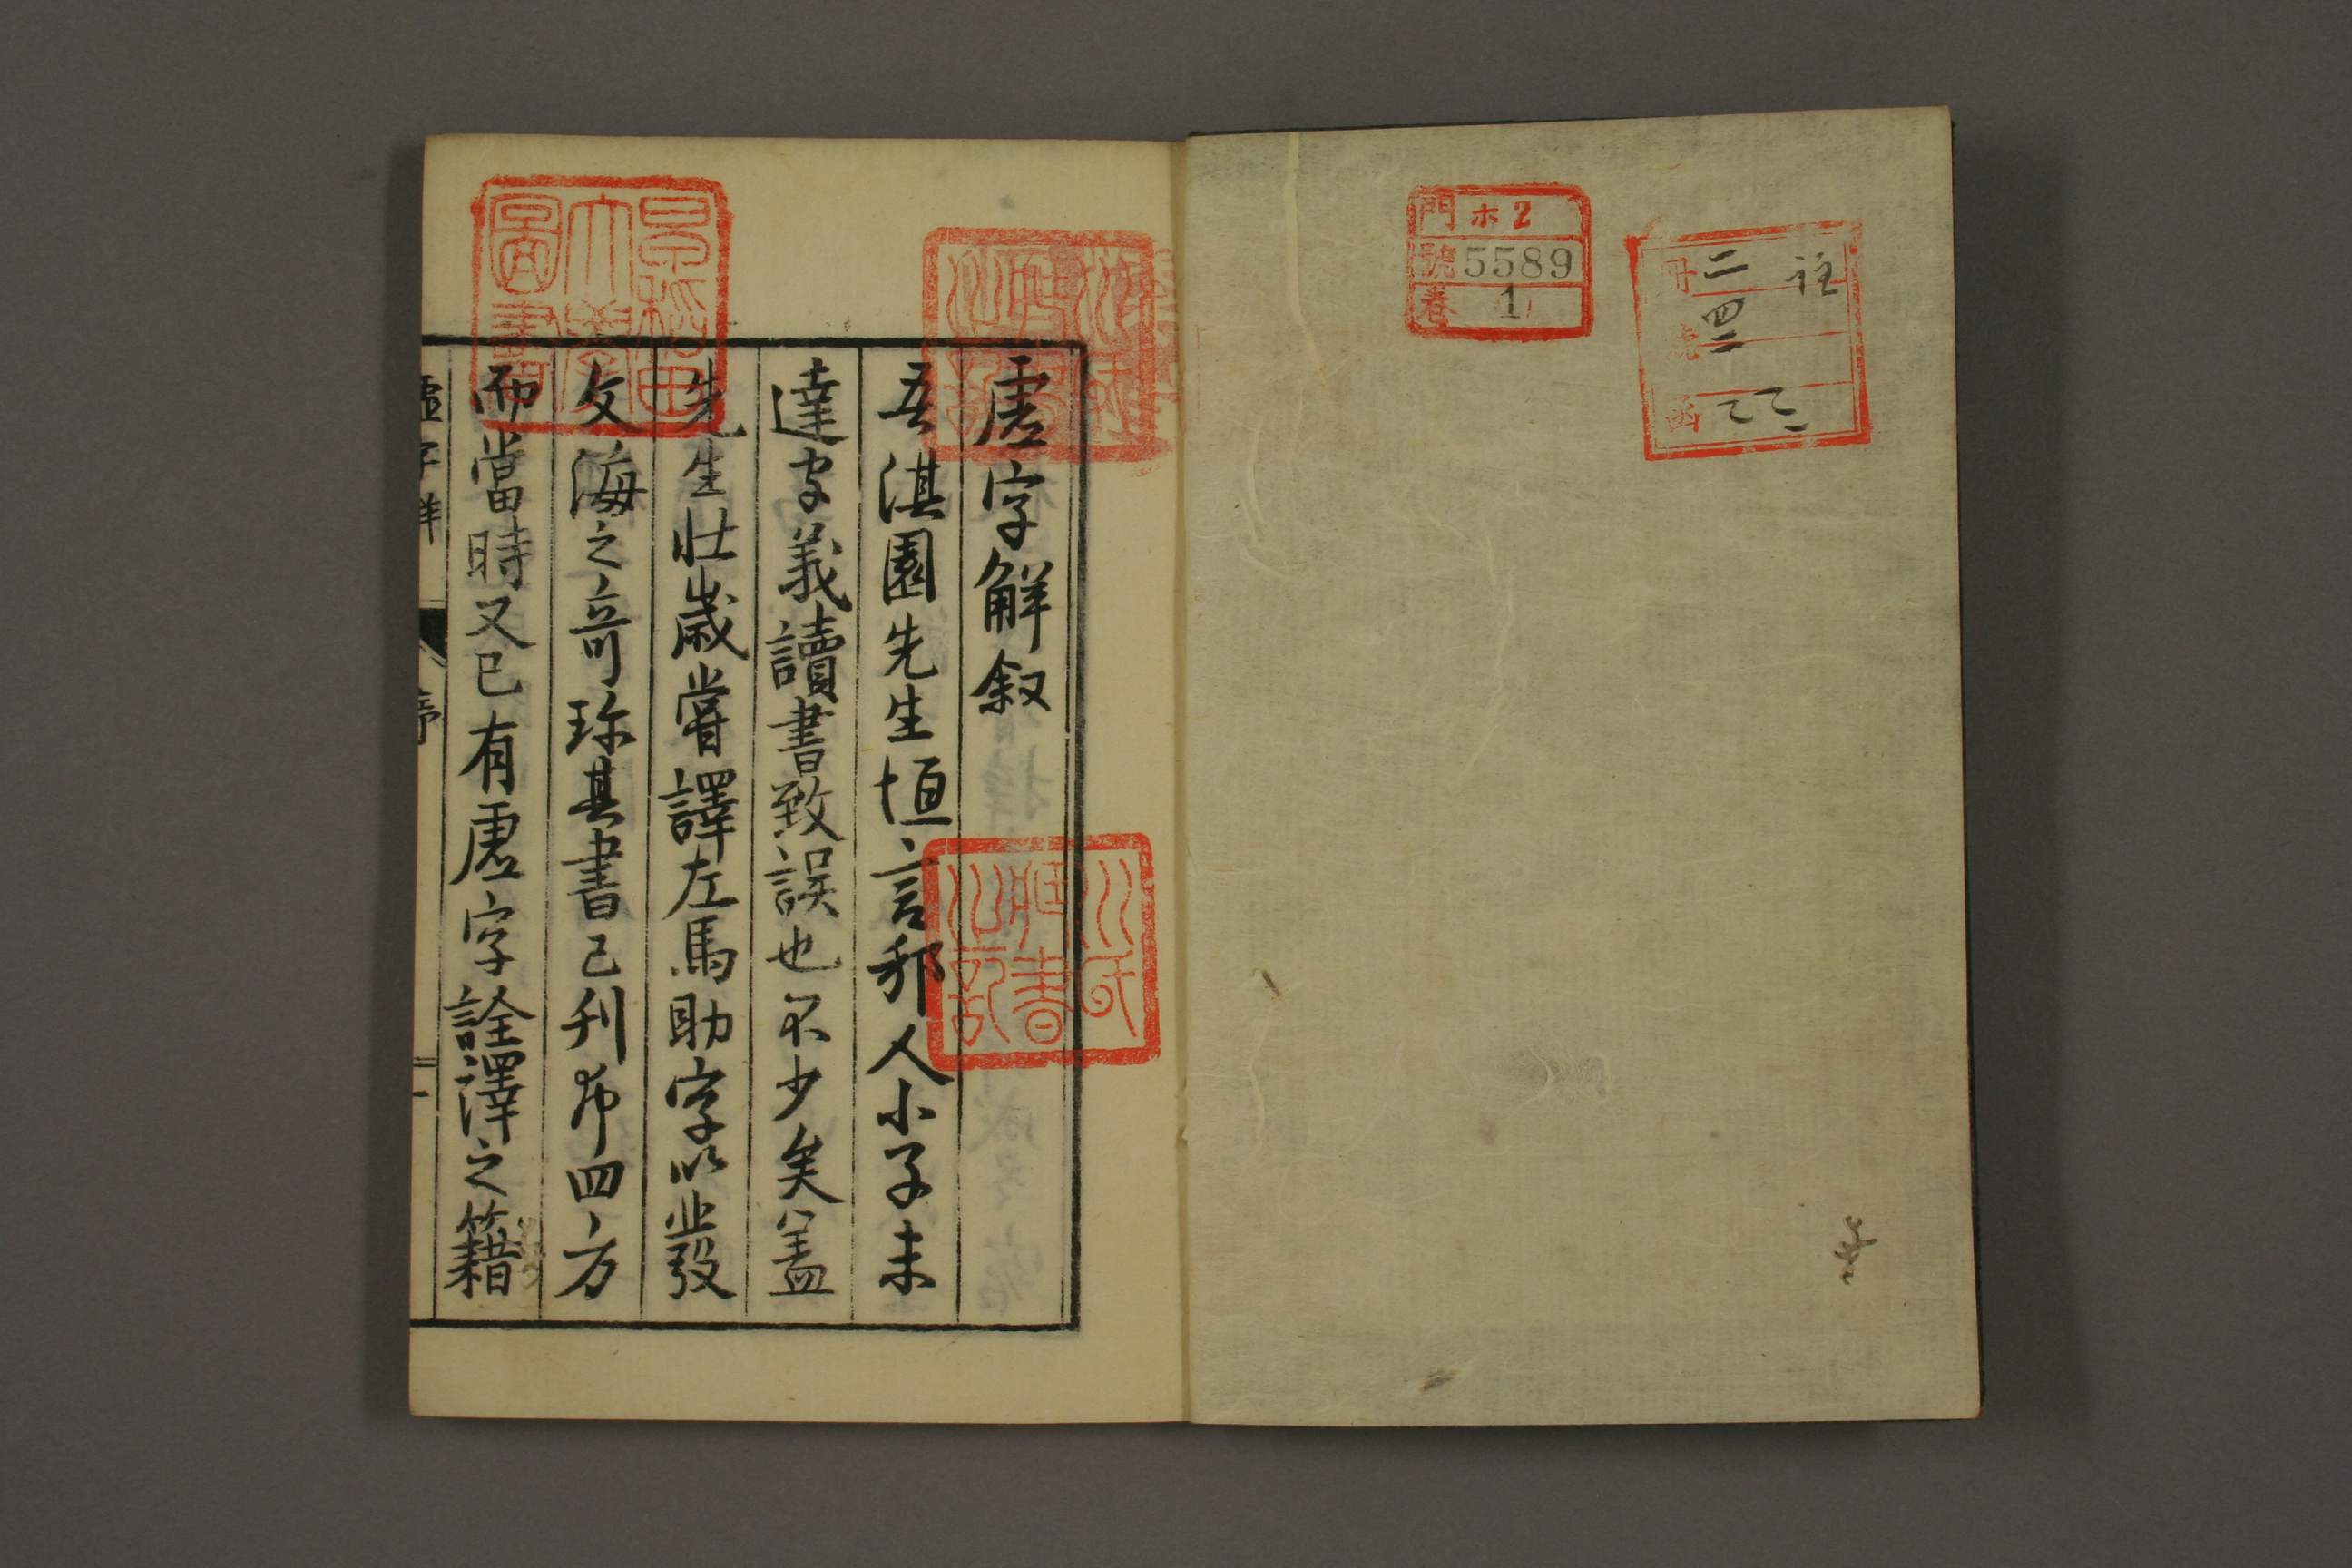 門 ホ2
號 5589
卷 1
註
冊 二
號 四二
函
虛字解叙
吾淇園先生恒言邦人小子未
達字義讀書致誤也不少矣蓋
先生壯歲嘗譯左馬助字以發
文海之奇珎其書已刋布四方
而當時又已有虛字詮譯之籍
虛字詳 序 一
早稻田大學圖書